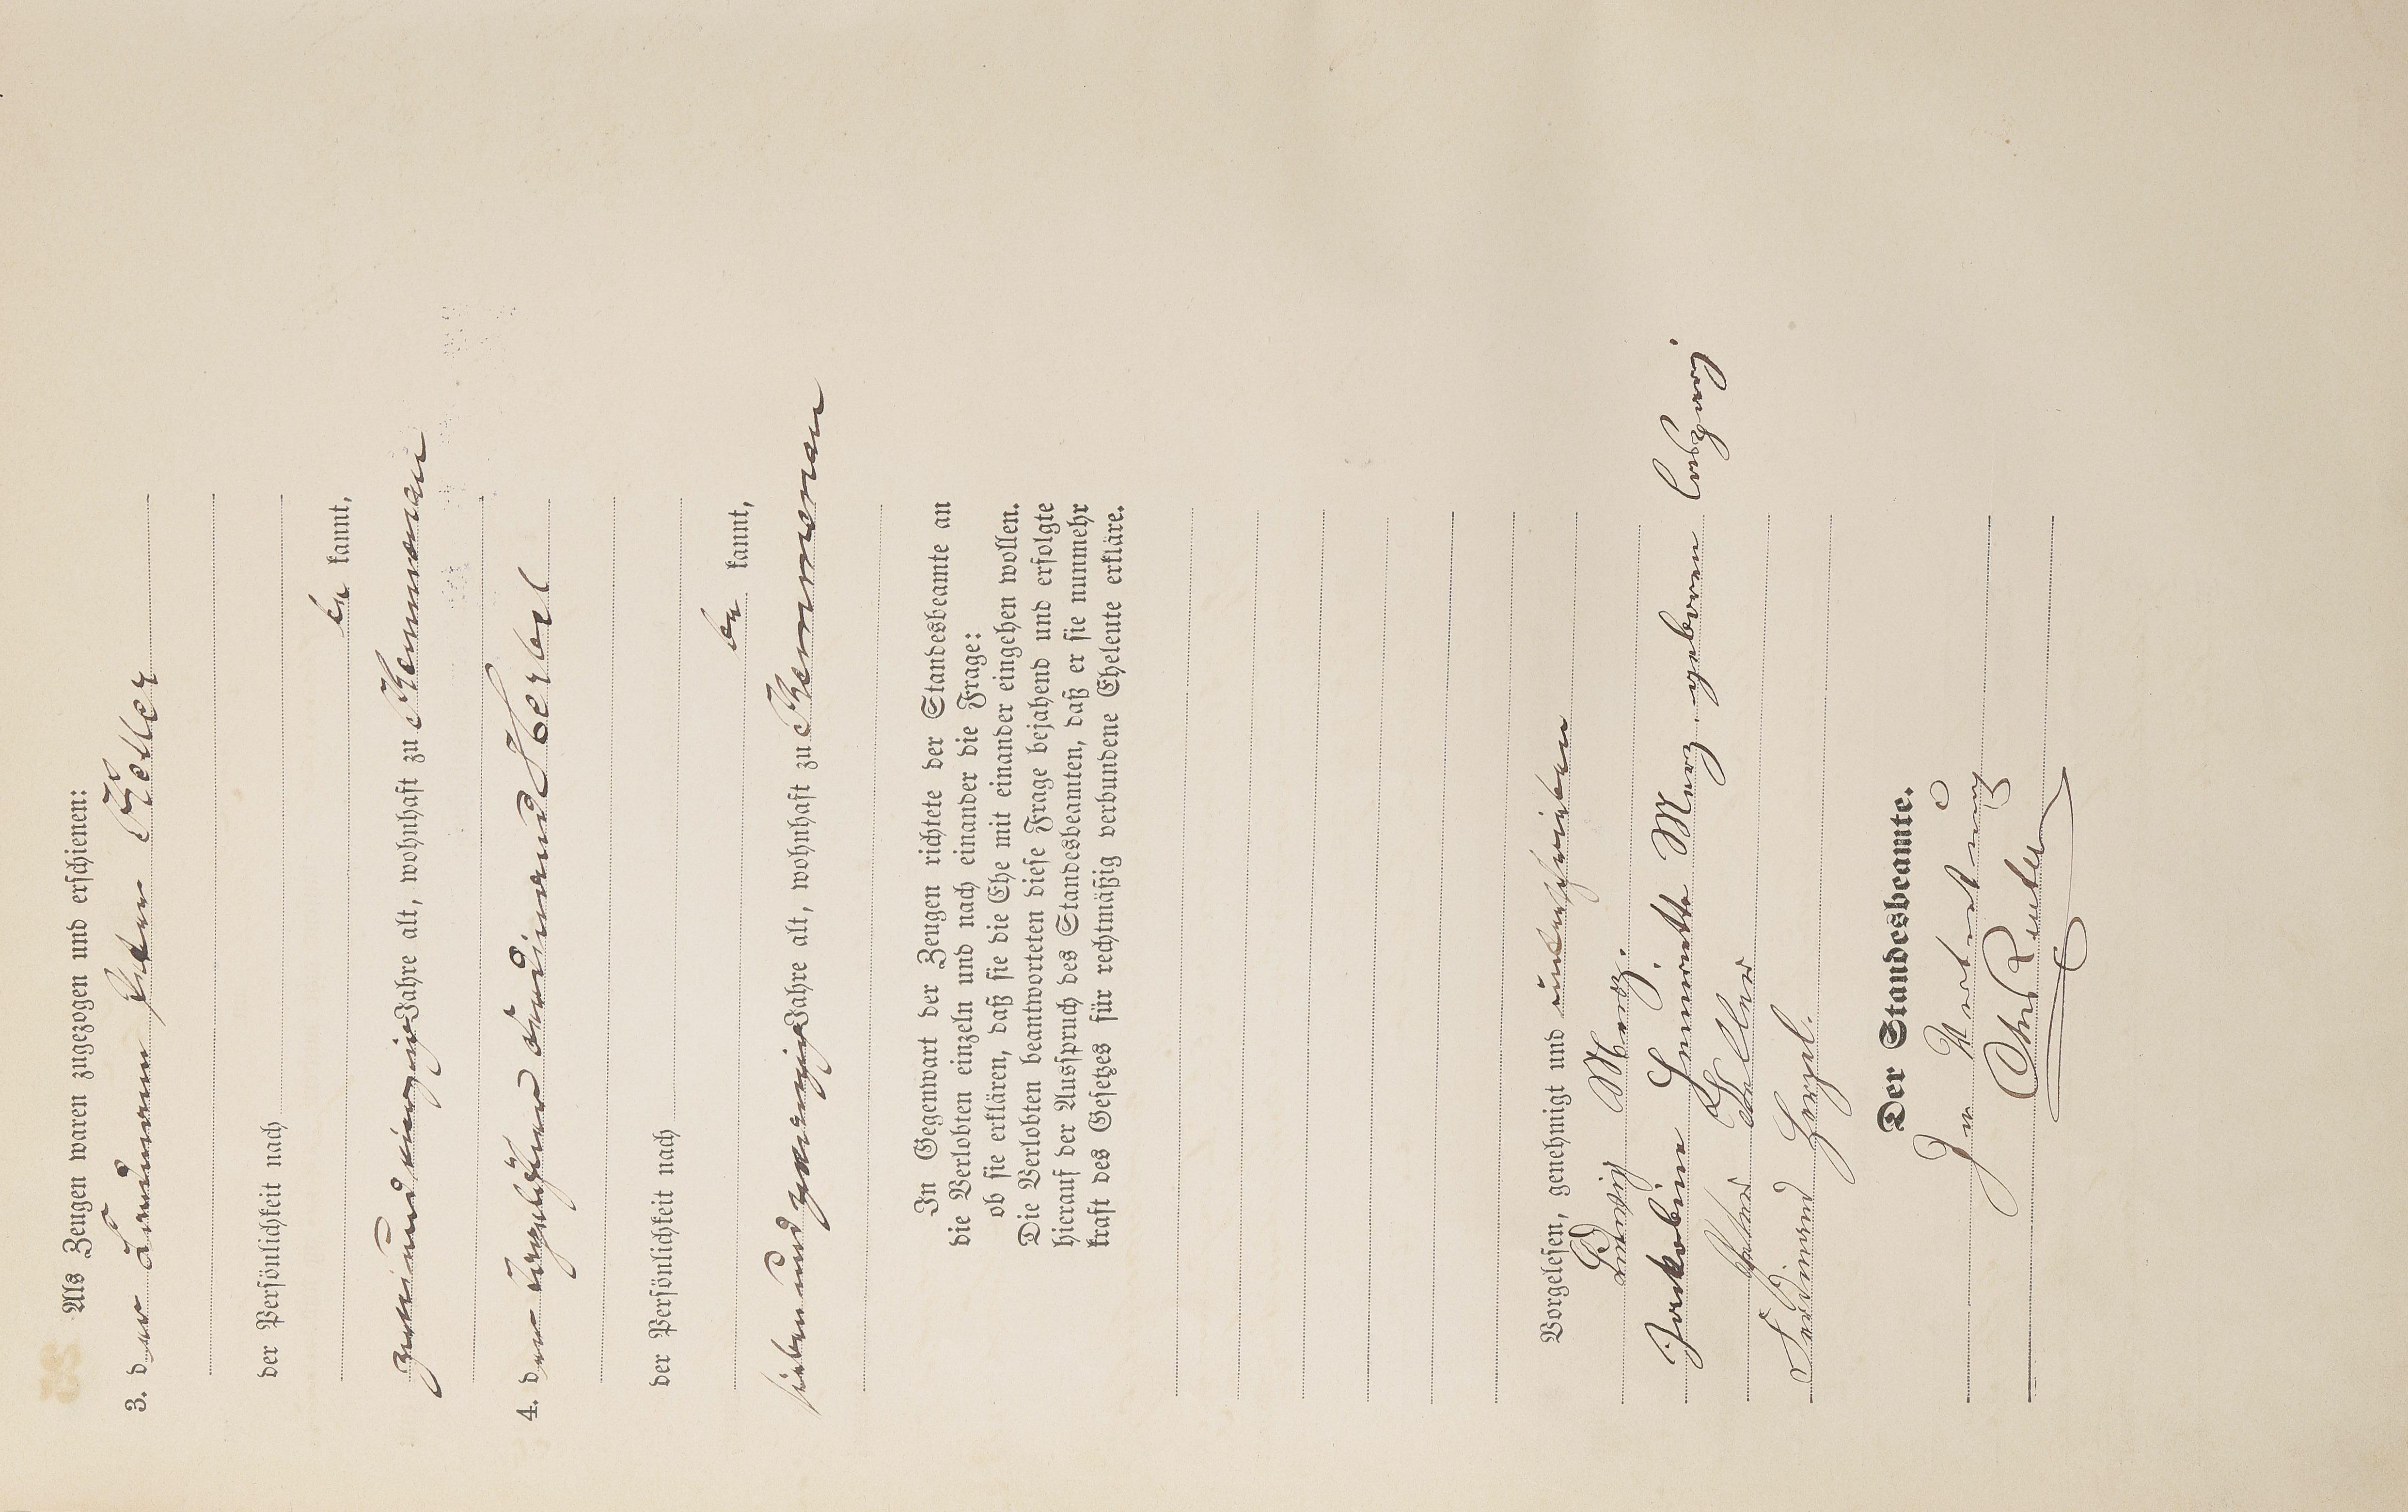 Als Zeugen waren zugezogen und erschienen:
3. der Landmann Peter Feller
der Persönlichkeit nach
be kannt,
zweiundvierzig Jahre alt, wohnhaft zu Kemmenau
4. der Taglöhner Ferdinand Herbel
der Persönlichkeit nach
be kannt,
siebenundzwanzig Jahre alt, wohnhaft zu Kemmenau
In Gegenwart der Zeugen richtete der Standesbeamte an
die Verlobten einzeln und nach einander die Frage:
ob sie erklären, daß sie die Ehe mit einander eingehen wollen.
Die Verlobten beantworteten diese Frage bejahend und erfolgte
hierauf der Ausspruch des Standesbeamten, daß er sie nunmehr
kraft des Gesetzes für rechtmäßig verbundene Eheleute erkläre.
Vorgelesen, genehmigt und unterschrieben
Ludwig Merz.
Jackobine Henriette Merz geboren
Peter Feller
Ferdinand
Der Standesbeamte.
In Vertretung